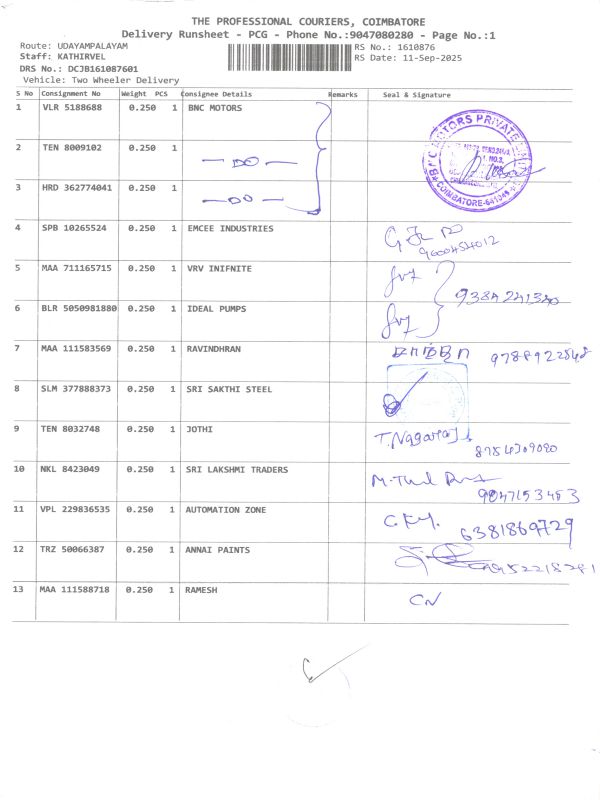 THE PROFESSIONAL COURIERS, COIMBATORE
Delivery Runsheet - PCG - Phone No.:9047080280 - Page No.:1
Route: UDAYAMPALAYAM
RS No.: 1610876
Staff: KATHIRVEL
RS Date: 11-Sep-2025
DRS No.: DCJB161087601
Vehicle: Two Wheeler Delivery
S No Consignment No Weight PCS Consignee Details Remarks Seal & Signature
1 VLR 5188688 0.250 1 BNC MOTORS
2 TEN 8009102 0.250 1 — DO —
3 HRD 362774041 0.250 1 — DO —
COIMBATORE-641049
4 SPB 10265524 0.250 1 EMCEE INDUSTRIES
9600454012
5 MAA 711165715 0.250 1 VRV INIFNITE
6 BLR 5050981880 0.250 1 IDEAL PUMPS
7 MAA 111583569 0.250 1 RAVINDHRAN
8 SLM 377888373 0.250 1 SRI SAKTHI STEEL
9 TEN 8032748 0.250 1 JOTHI T.Nagaraj
10 NKL 8423049 0.250 1 SRI LAKSHMI TRADERS
9047153453
11 VPL 229836535 0.250 1 AUTOMATION ZONE 6381869729
12 TRZ 50066387 0.250 1 ANNAI PAINTS
13 MAA 111588718 0.250 1 RAMESH CN